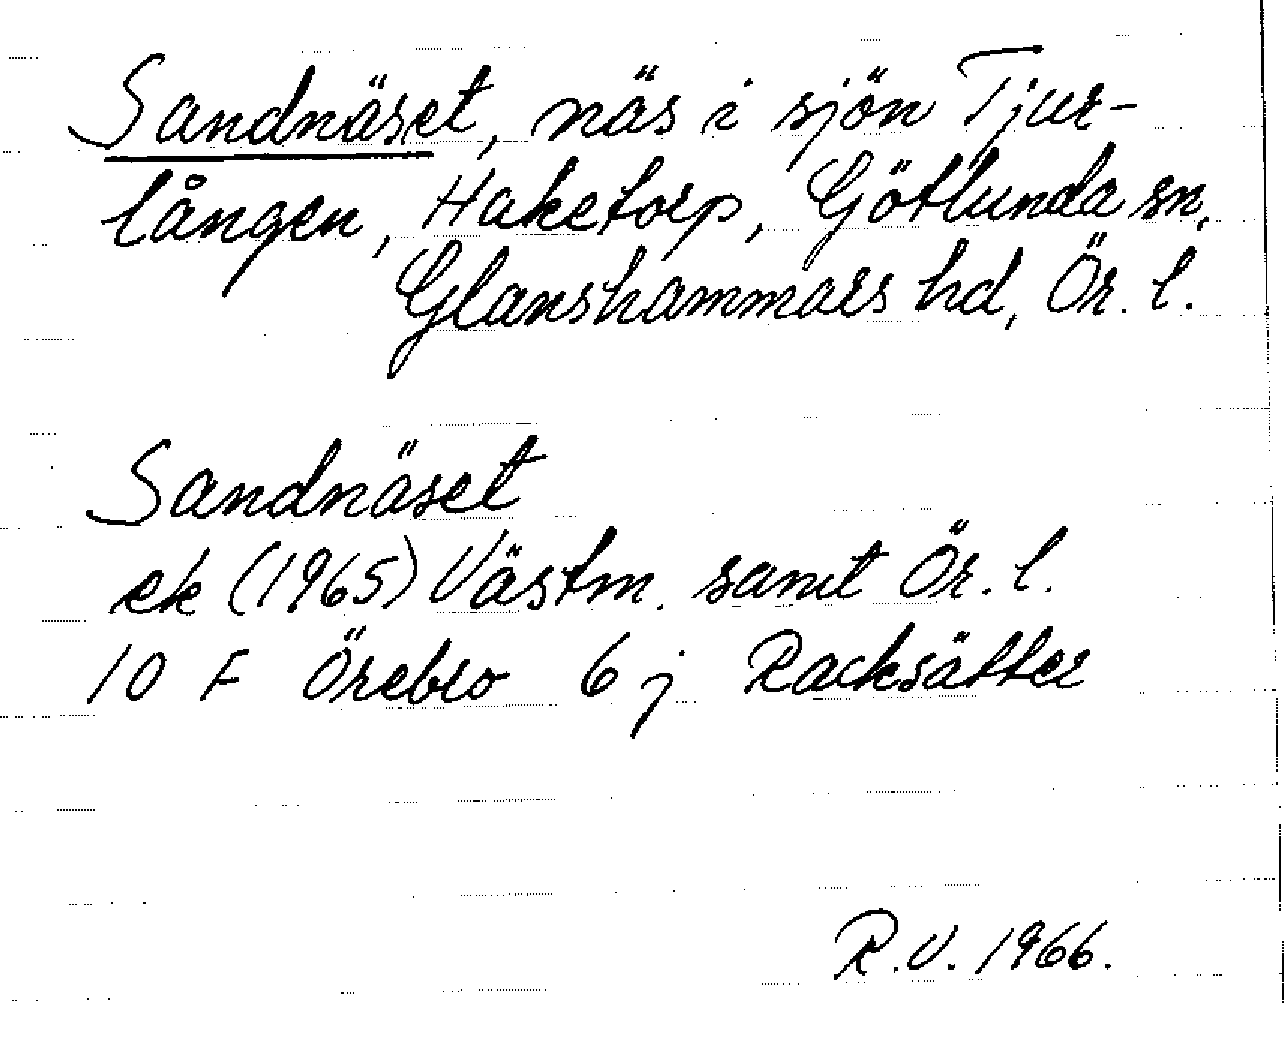 Sandnäset, näs i sjön Tjur-
lången, Haketorp, Götlunda sn,
Glanshammars hd, Ör. l.
Sandnäset
ek (1965) Västm. samt Ör. l.
10 F Örebro 6 j Racksätter
R.V. 1966.